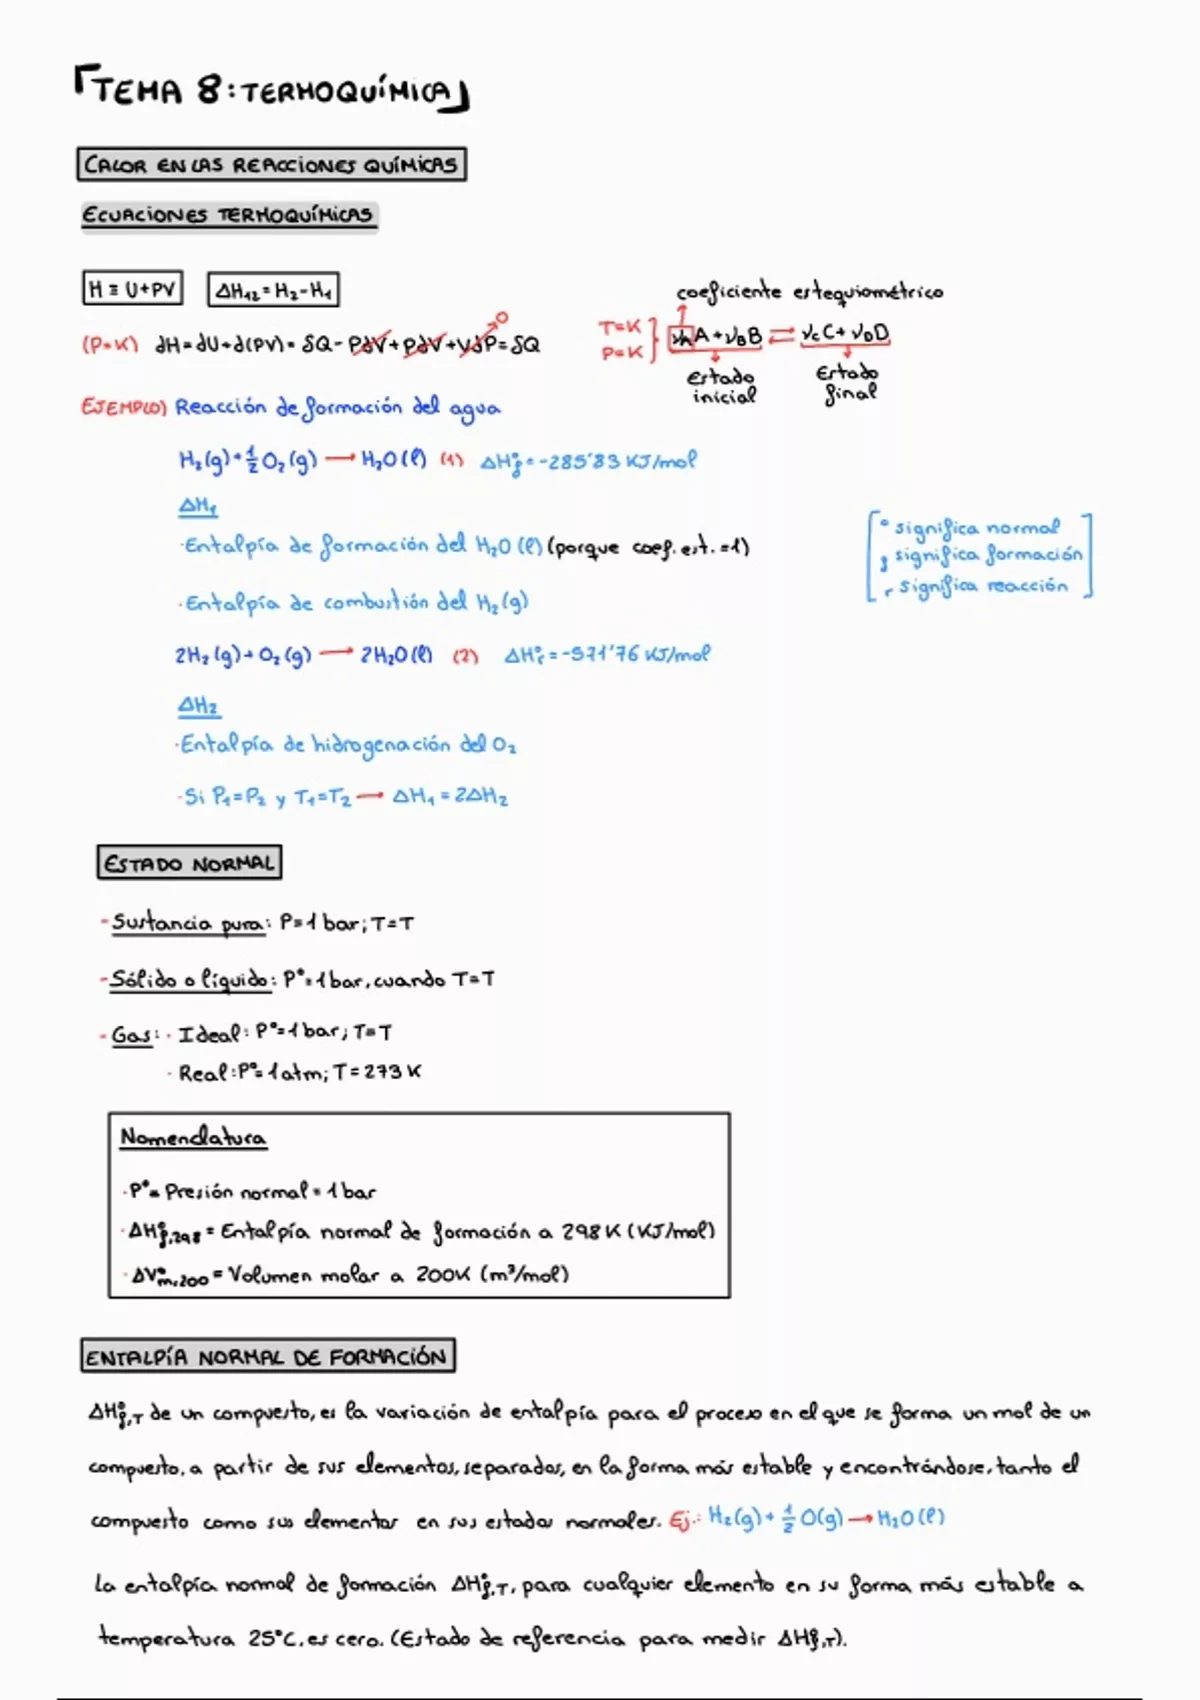 「TEMA 8: TERMOQUÍMICA」
CALOR EN LAS REACCIONES QUÍMICAS
ECUACIONES TERMOQUÍMICAS
H ≡ U+PV   ΔH₁₂ = H₂-H₁
coeficiente estequiométrico
(P=K) dH=dU+d(PV)= δQ - PdV + PdV + VdP = δQ
0
T=K
P=K
A+νB B ⇌ νc C+ νD D
Estado inicial
Estado final
EJEMPLO) Reacción de formación del agua
H₂(g)+½O₂(g) → H₂O(l) (1) ΔH°f = -285'83 KJ/mol
ΔH₁
·Entalpía de formación del H₂O(l) (porque coef. est. =1)
° significa normal
f significa formación
r significa reacción
·Entalpía de combustión del H₂(g)
2H₂(g)+O₂(g) → 2H₂O(l) (2) ΔH°r = -571'76 KJ/mol
ΔH₂
·Entalpía de hidrogenación del O₂
·Si P₁=P₂ y T₁=T₂ → ΔH₁ = 2ΔH₂
ESTADO NORMAL
-Sustancia pura: P=1 bar; T=T
-Sólido o líquido: P°=1bar, cuando T=T
-Gas: · Ideal: P°=1 bar; T=T
· Real: P°=1atm; T=273 K
Nomenclatura
·P°= Presión normal = 1 bar
·ΔH°f,298 = Entalpía normal de formación a 298K (KJ/mol)
·ΔV°m,200 = Volumen molar a 200K (m³/mol)
ENTALPÍA NORMAL DE FORMACIÓN
ΔH°f,T de un compuesto, es la variación de entalpía para el proceso en el que se forma un mol de un
compuesto, a partir de sus elementos, separados, en la forma más estable y encontrándose, tanto el
compuesto como sus elementos en sus estados normales. Ej.: H₂(g)+ ½ O(g) → H₂O(l)
La entalpía normal de formación ΔH°f,T, para cualquier elemento en su forma más estable a
temperatura 25°C, es cero. (Estado de referencia para medir ΔH°f,T).